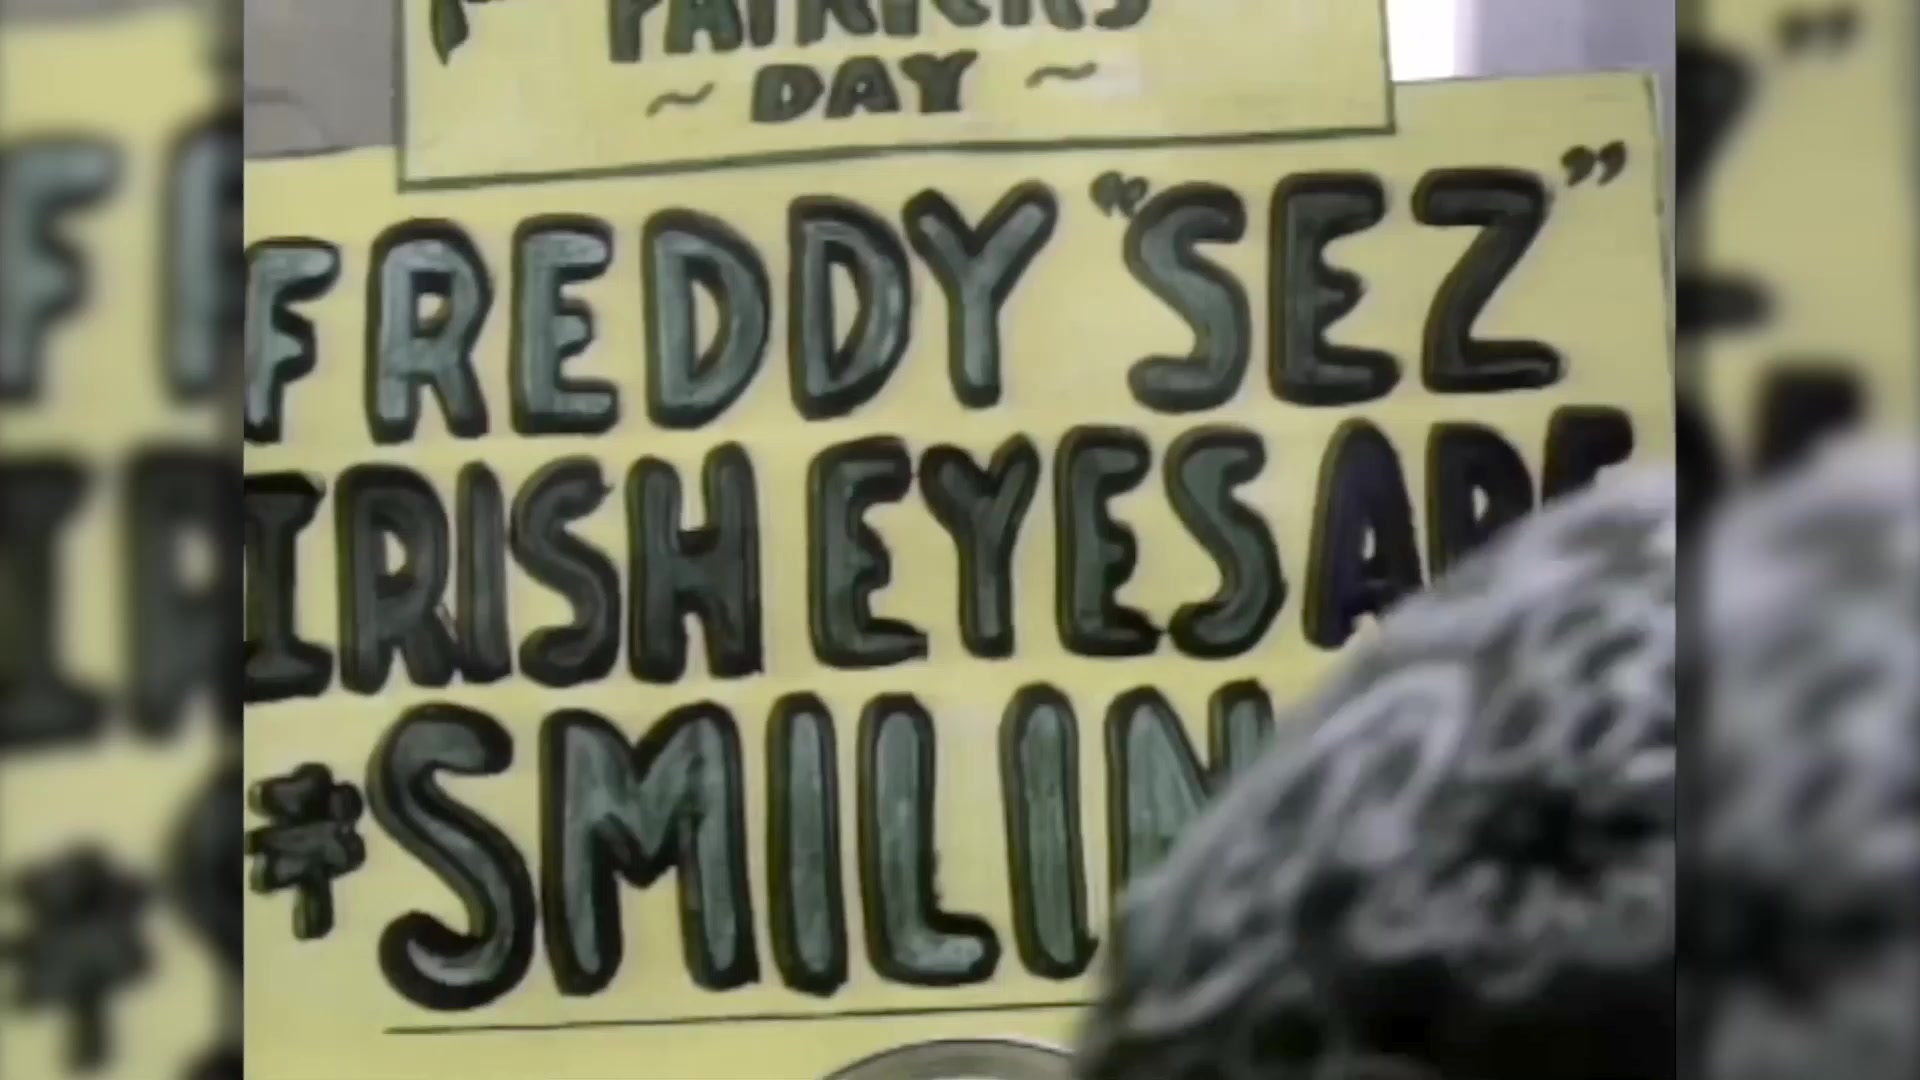 PATRICK'S
~ DAY ~
FREDDY "SEZ"
IRISH EYES ARE
SMILIN